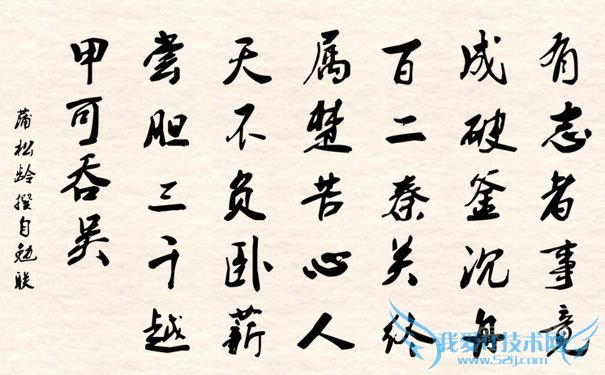 有志者事竟
成破釜沉舟
百二秦关终
属楚苦心人
天不负卧薪
尝胆三千越
甲可吞吴
蒲松龄撰自勉联
我爱IT技术网
www.52ij.com